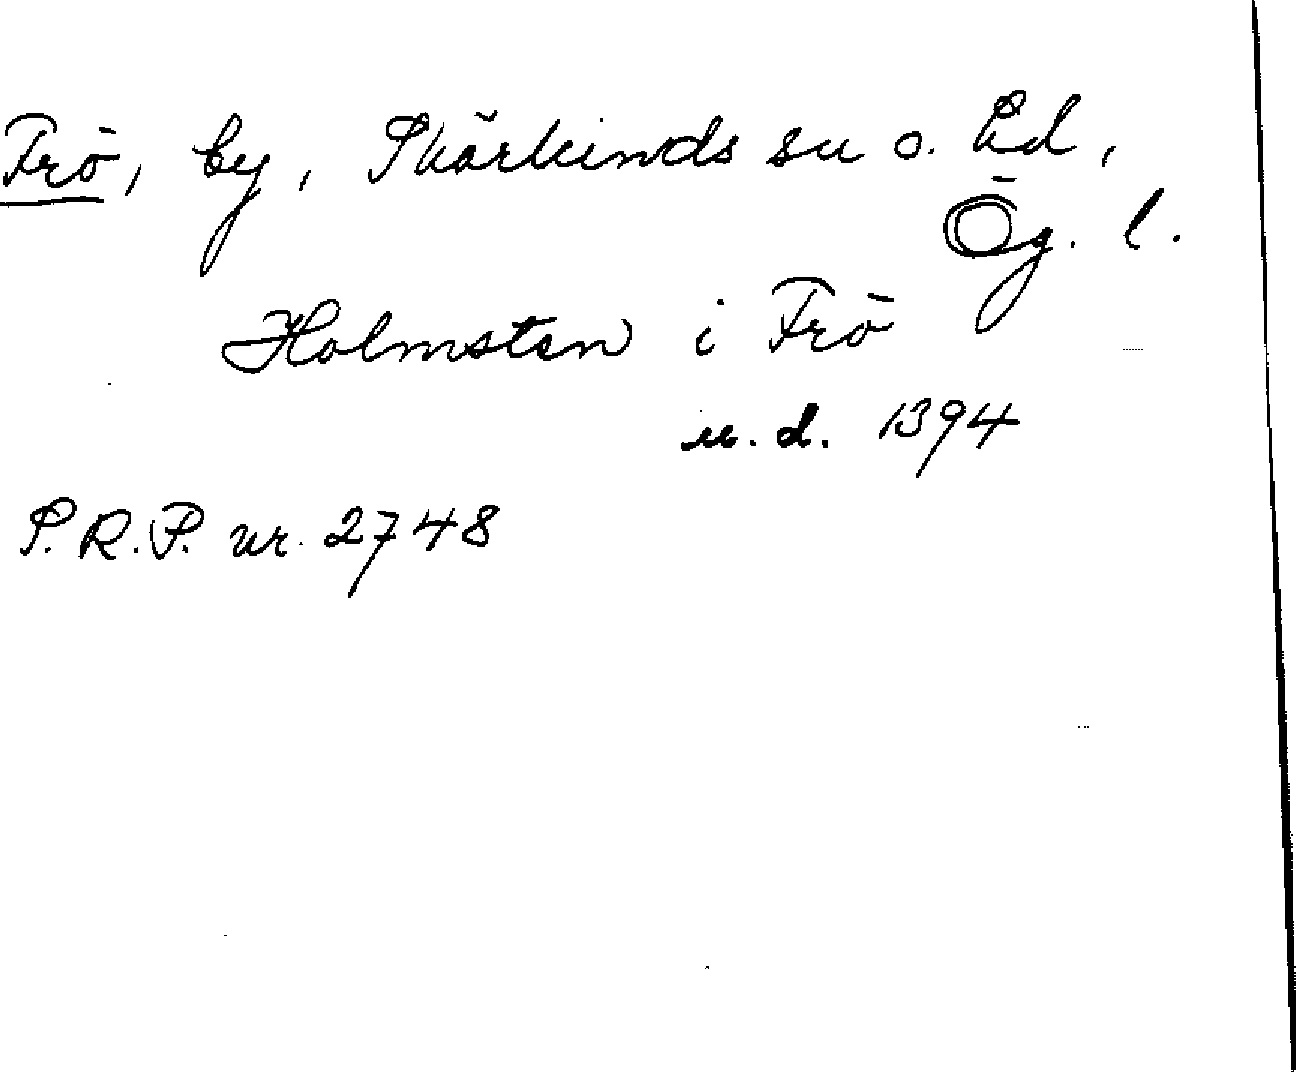 Frö, by, Skärkinds sn o. hd,
Ög. l.
Holmsten i Frö
u. d. 1394
S. R. P. nr. 2748